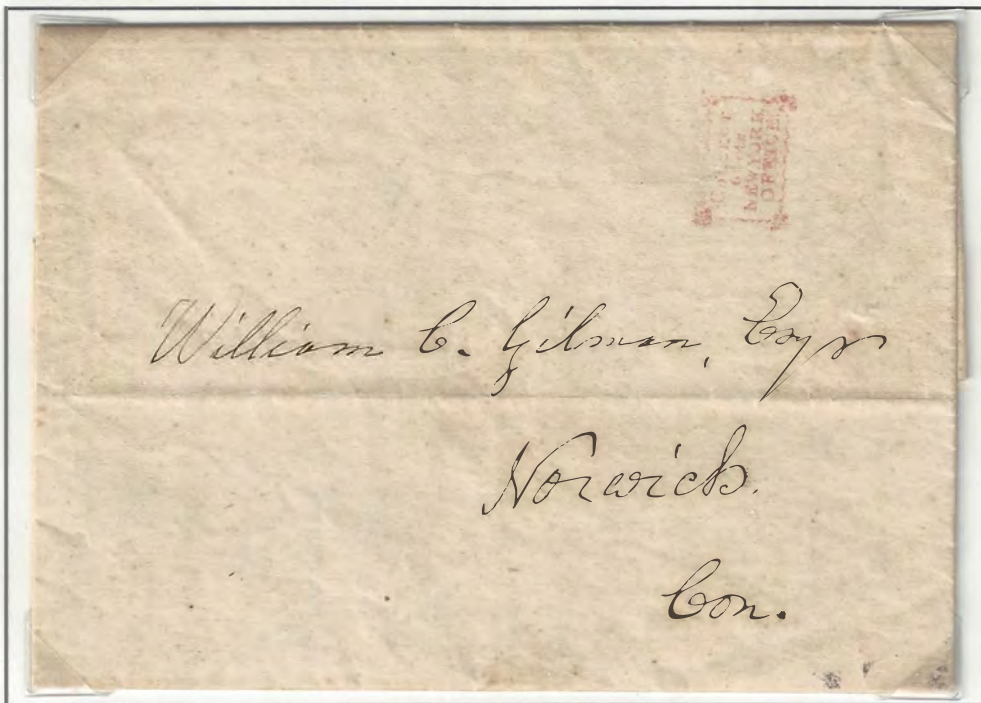 NEWYORK
OFFICE
William C. Gilman, Esqr
Norwich.
Con.